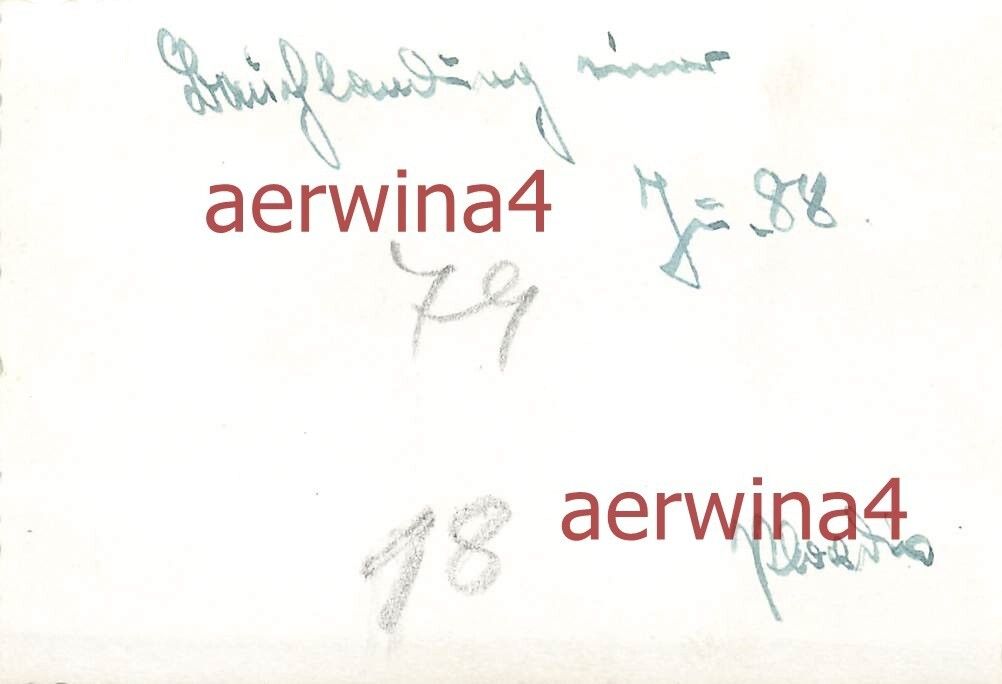 Bauchlandung einer
aerwina4
Ju-88.
79
aerwina4
18